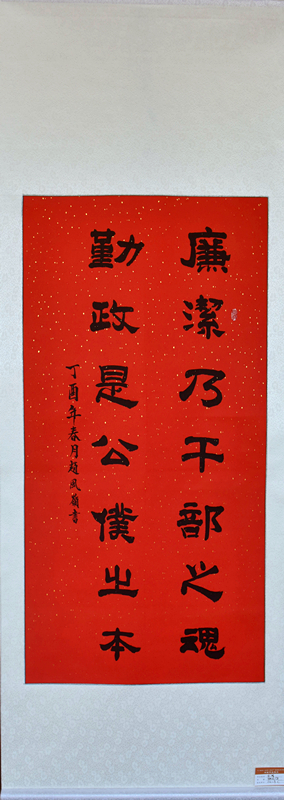 廉潔乃干部之魂
勤政是公僕之本
丁酉年春月趙風嶺書